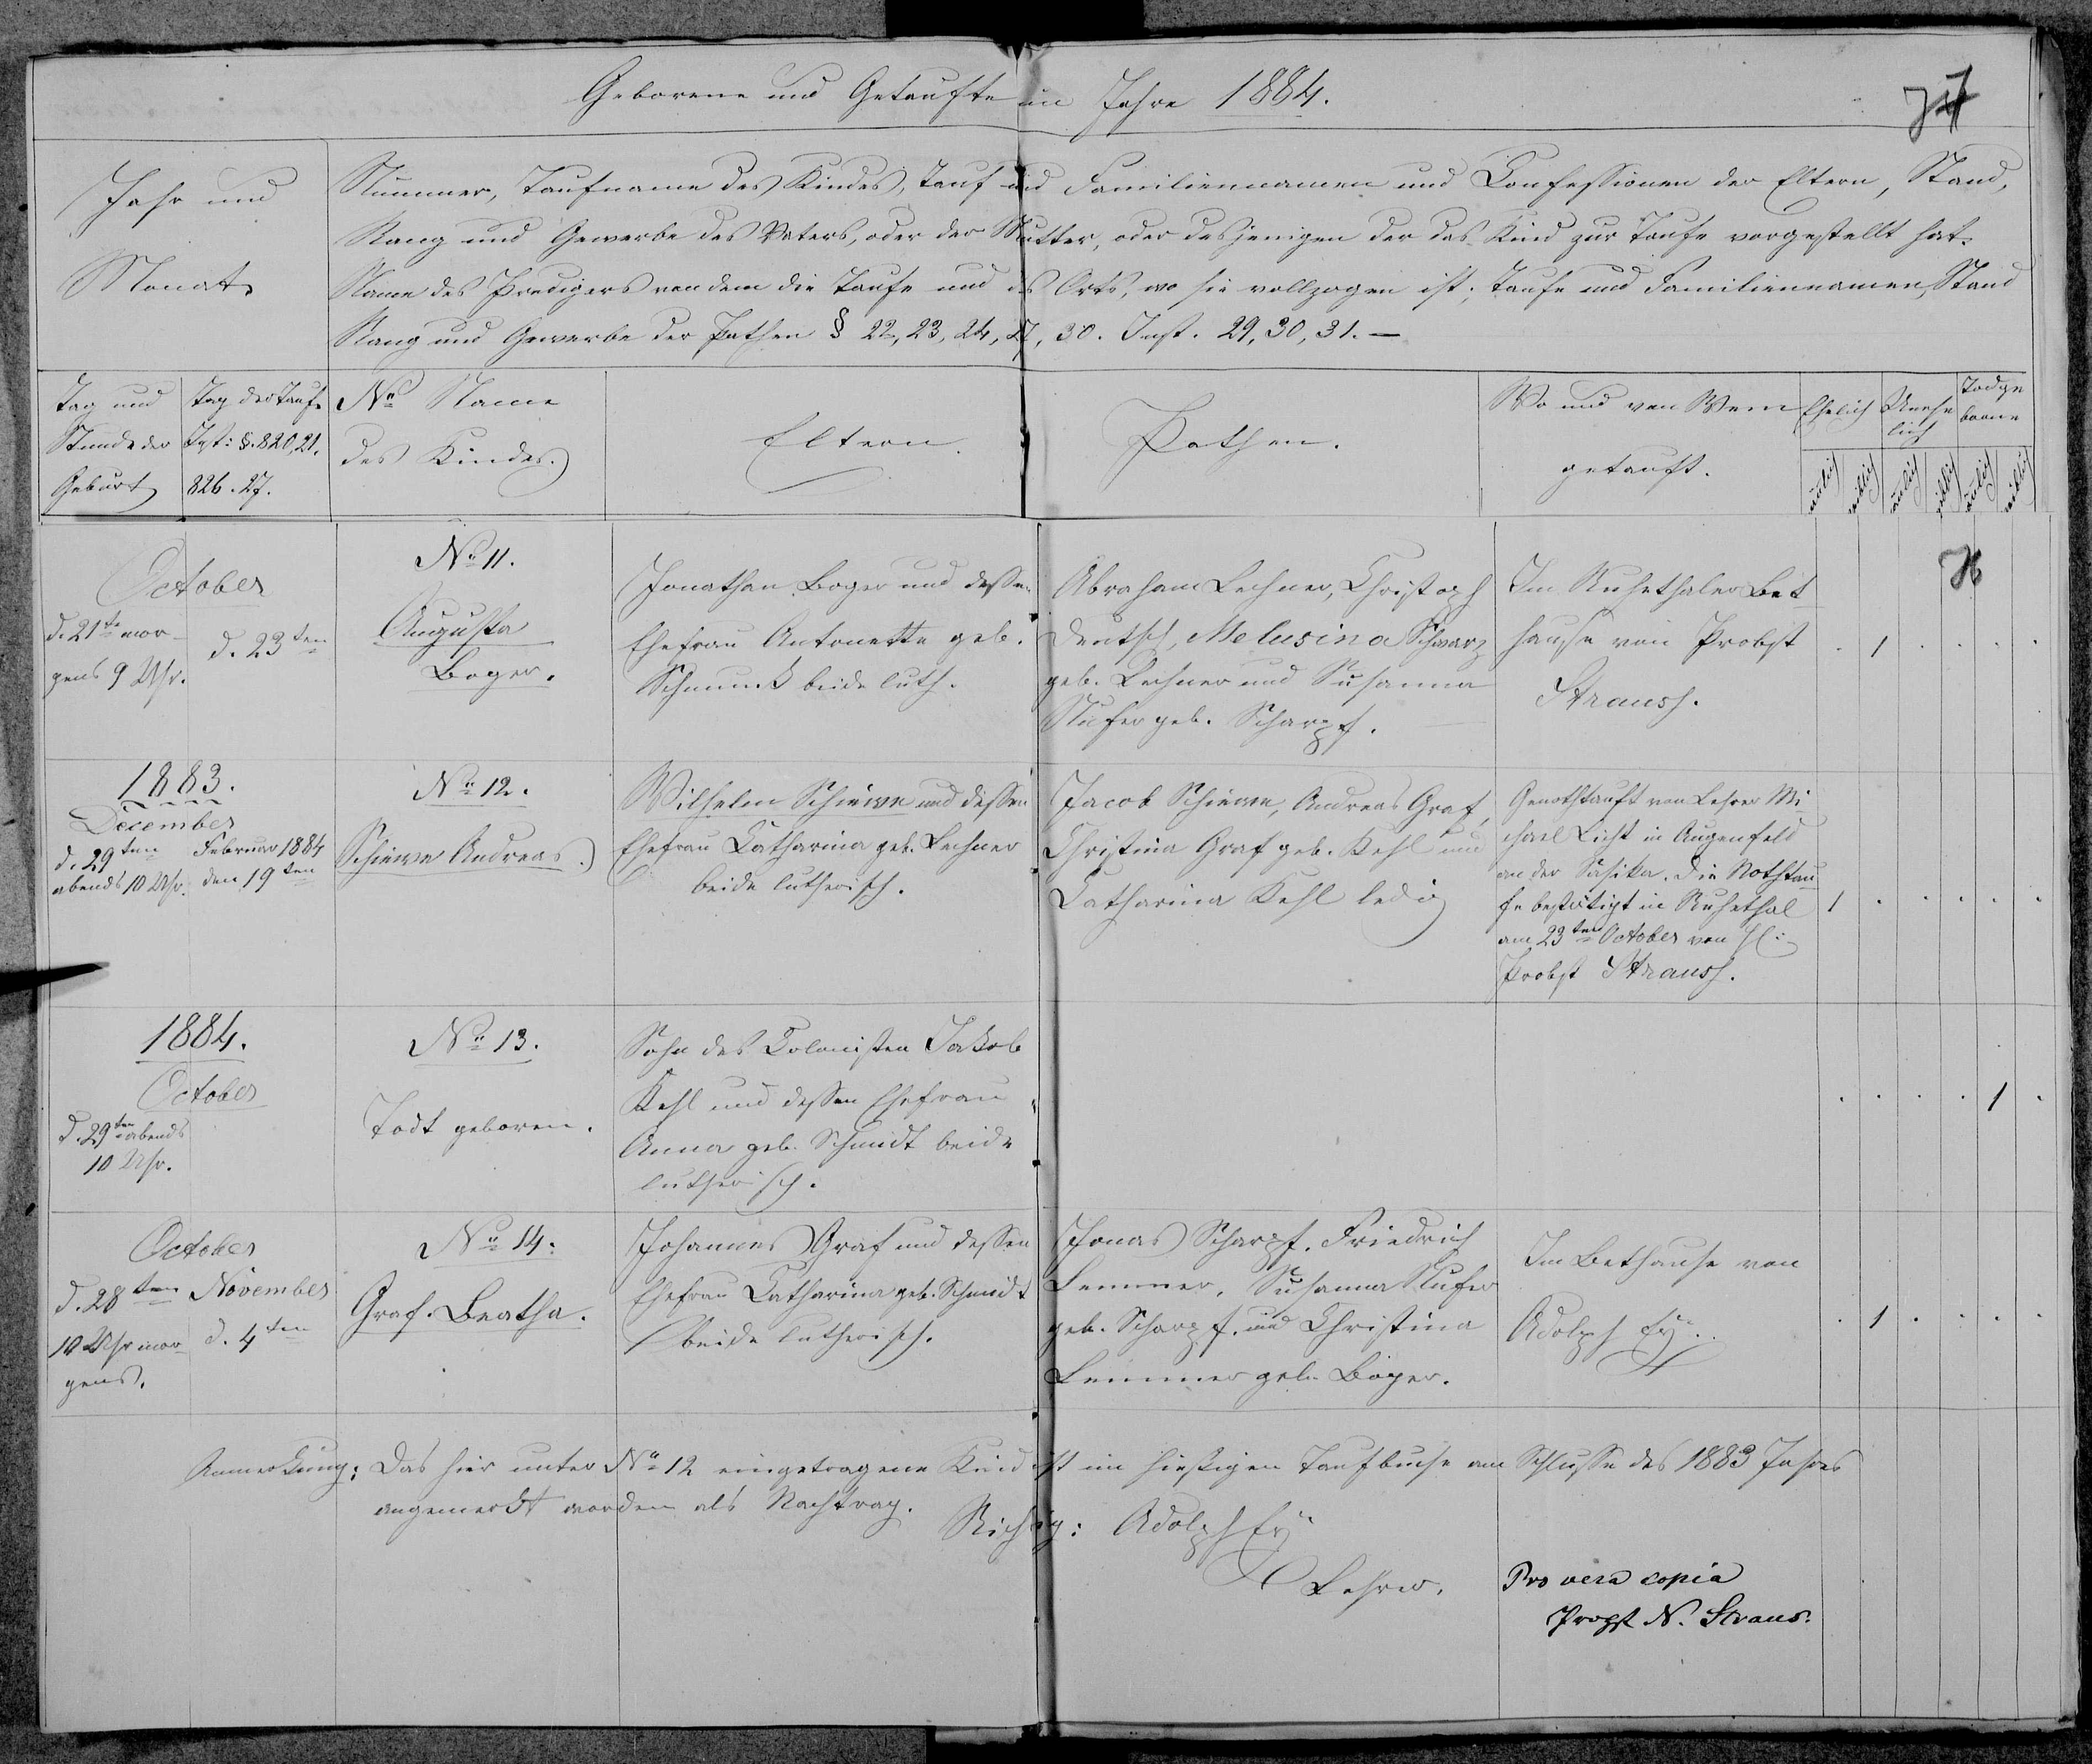 Geborene und Getaufte im Jahre 1884.
Jahr und
Monat.
Nummer, Taufname des Kindes, Tauf und Familiennamen und Confessionen der Eltern, Stand,
Rang und Gewerbe des Vaters, oder der Mutter, oder desjenigen der das Kind zur Taufe vorgestellt hat.
Name des Predigers von dem die Taufe und des Orts, wo sie vollzogen ist; Taufe und Familiennamen, Stand
Rang und Gewerbe der Pathen § 22, 23, 24, 27, 30. Inst. 29, 30, 31. —
Tag und
Stunde der
Geburt
Tag der Taufe
§. 820, 21.
826. 27.
No Name
des Kindes.
Eltern.
Pathen.
Wo und von Wem
getauft.
Ehelich
Unehe
lich
Todge
borne
October
d. 21te mor-
gens 9 Uhr.
d. 23ten
No 11.
Augusta
Boger.
Jonathan Boger und dessen
Ehefrau Antonette geb.
Schmunk beide luth.
Abraham Lechner, Christoph
Deutsch, Melusina Schwarz
geb. Lechner und Susanna
Nufer geb. Scharpf.
Im Ruhethaler Bet
hause von Probst
Strauss.
. 1 . . . .
1883.
December
d. 29ten
abends 10 Uhr.
Februar 1884
den 19ten
No 12.
Schiewe Andreas.
Wilhelm Schiewe und dessen
Ehefrau Catharina geb. Lechner
beide lutherisch.
Jacob Schiewe, Andreas Graf,
Christina Graf geb. Kehl und
Catharina Kehl ledig
Genothtauft von Lehrer Mi
chael Licht in Augenfeld
an der Sasika. Die Nothtau-
fe bestätigt in Ruhethal
am 23ten October von H:
Probst Strauss.
1 . . . . .
1884.
October
d. 29ten abends
10 Uhr.
No 13.
Todt geboren.
Sohn des Colonisten Jakob
Kehl und dessen Ehefrau
Anna geb. Schmidt beide
lutherisch.
. . . . 1 .
October
d. 28ten
10 Uhr mor-
gens.
November
d. 4ten
No 14.
Graf. Beatha.
Johannes Graf und dessen
Ehefrau Catharina geb. Schmidt
beide lutherisch.
Jonas Scharpf. Friedrich
Lemmer, Susanna Nufer
geb. Scharpf. und Christina
Lemmer geb. Böger.
Im Bethause von
Adolph Ey.
. 1 . . . .
Anmerkung: Das hier unter No 12 eingetragene Kind ist im hiesigen Taufbuche am Schlusse des 1883 Jahres
angemerkt worden als Nachtrag.
Richtig: Adolph Ey
Lehrer.
Pro vera copia
Propst N. Straus.